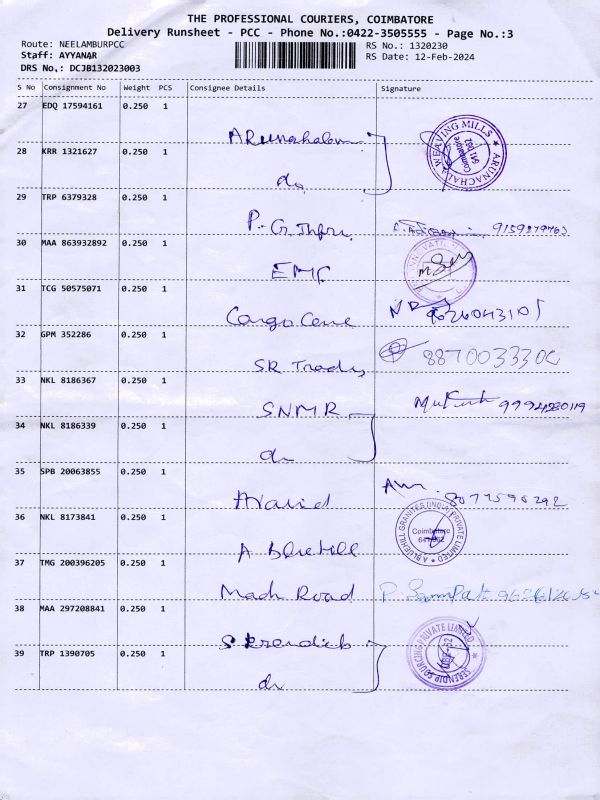 THE PROFESSIONAL COURIERS, COIMBATORE
Delivery Runsheet - PCC - Phone No.:0422-3505555 - Page No.:3
Route: NEELAMBURPCC RS No.: 1320230
Staff: AYYANAR RS Date: 12-Feb-2024
DRS No.: DCJB132023003
S No Consignment No Weight PCS Consignee Details Signature
27 EDQ 17594161 0.250 1
Arunachalam ARUNACHALA WEAVING MILLS Coimbatore 641 062
28 KRR 1321627 0.250 1
do
29 TRP 6379328 0.250 1
P. G.
30 MAA 863932892 0.250 1
EMF
31 TCG 50575071 0.250 1
Cargo Care 9626043105
32 GPM 352286 0.250 1
SR Trades
33 NKL 8186367 0.250 1
SNMR
34 NKL 8186339 0.250 1
do
35 SPB 20063855 0.250 1
Aravind 8077590292
36 NKL 8173841 0.250 1
A Bluehill A BLUEHILL GRANITES (INDIA) PRIVATE LIMITED Coimbatore
37 TMG 200396205 0.250 1
Mach Road P. Sampat
38 MAA 297208841 0.250 1
Serendib SERENDIP SOURCING PRIVATE LIMITED
39 TRP 1390705 0.250 1
do